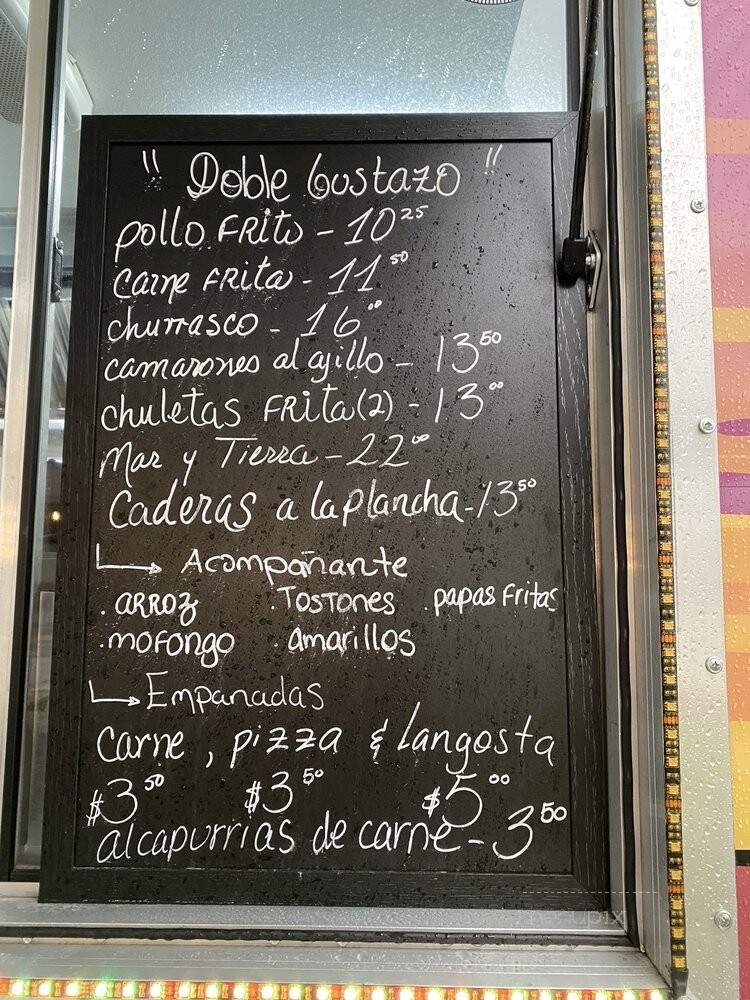 " Doble Gustazo "
pollo FRito - 10 25
carne FRita - 11 50
churrasco - 16 00
camarones al ajillo - 13 50
chuletas FRita (2) - 13 00
Mar y Tierra - 22 00
Caderas a la plancha - 13 50
Acompañante
. ARROZ . TOSTONES . papas Fritas
. mofongo . amarillos
Empanadas
Carne , pizza & Langosta
$3 50 $3 50 $5 00
alcapurrias de carne - 3 50